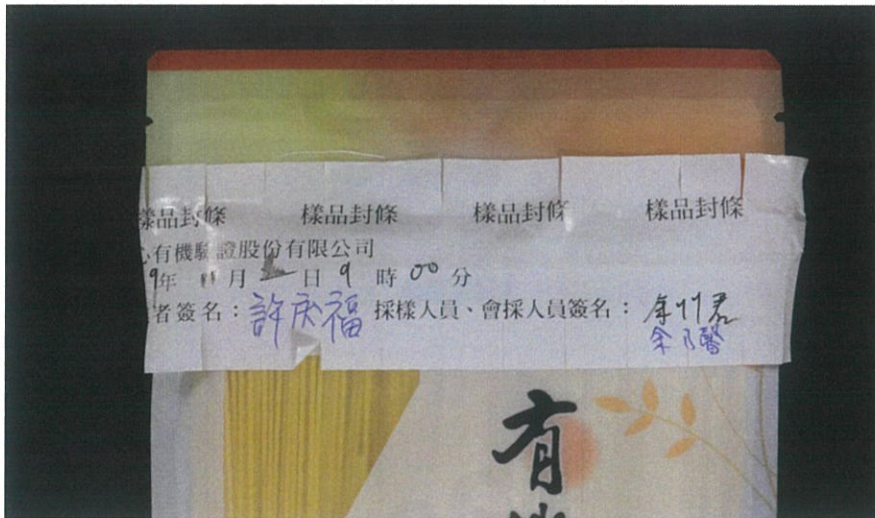 樣品封條 樣品封條 樣品封條 樣品封條
心有機驗證股份有限公司
9年 月 日 9 時 00 分
者簽名：許庆福 採樣人員、會採人員簽名：
余乃馨
有